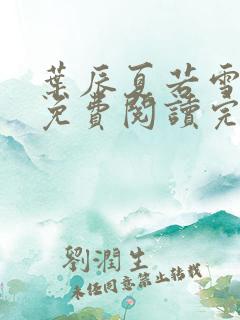 葉辰夏若雪
免費閱讀完
劉潤生
未经同意禁止转载